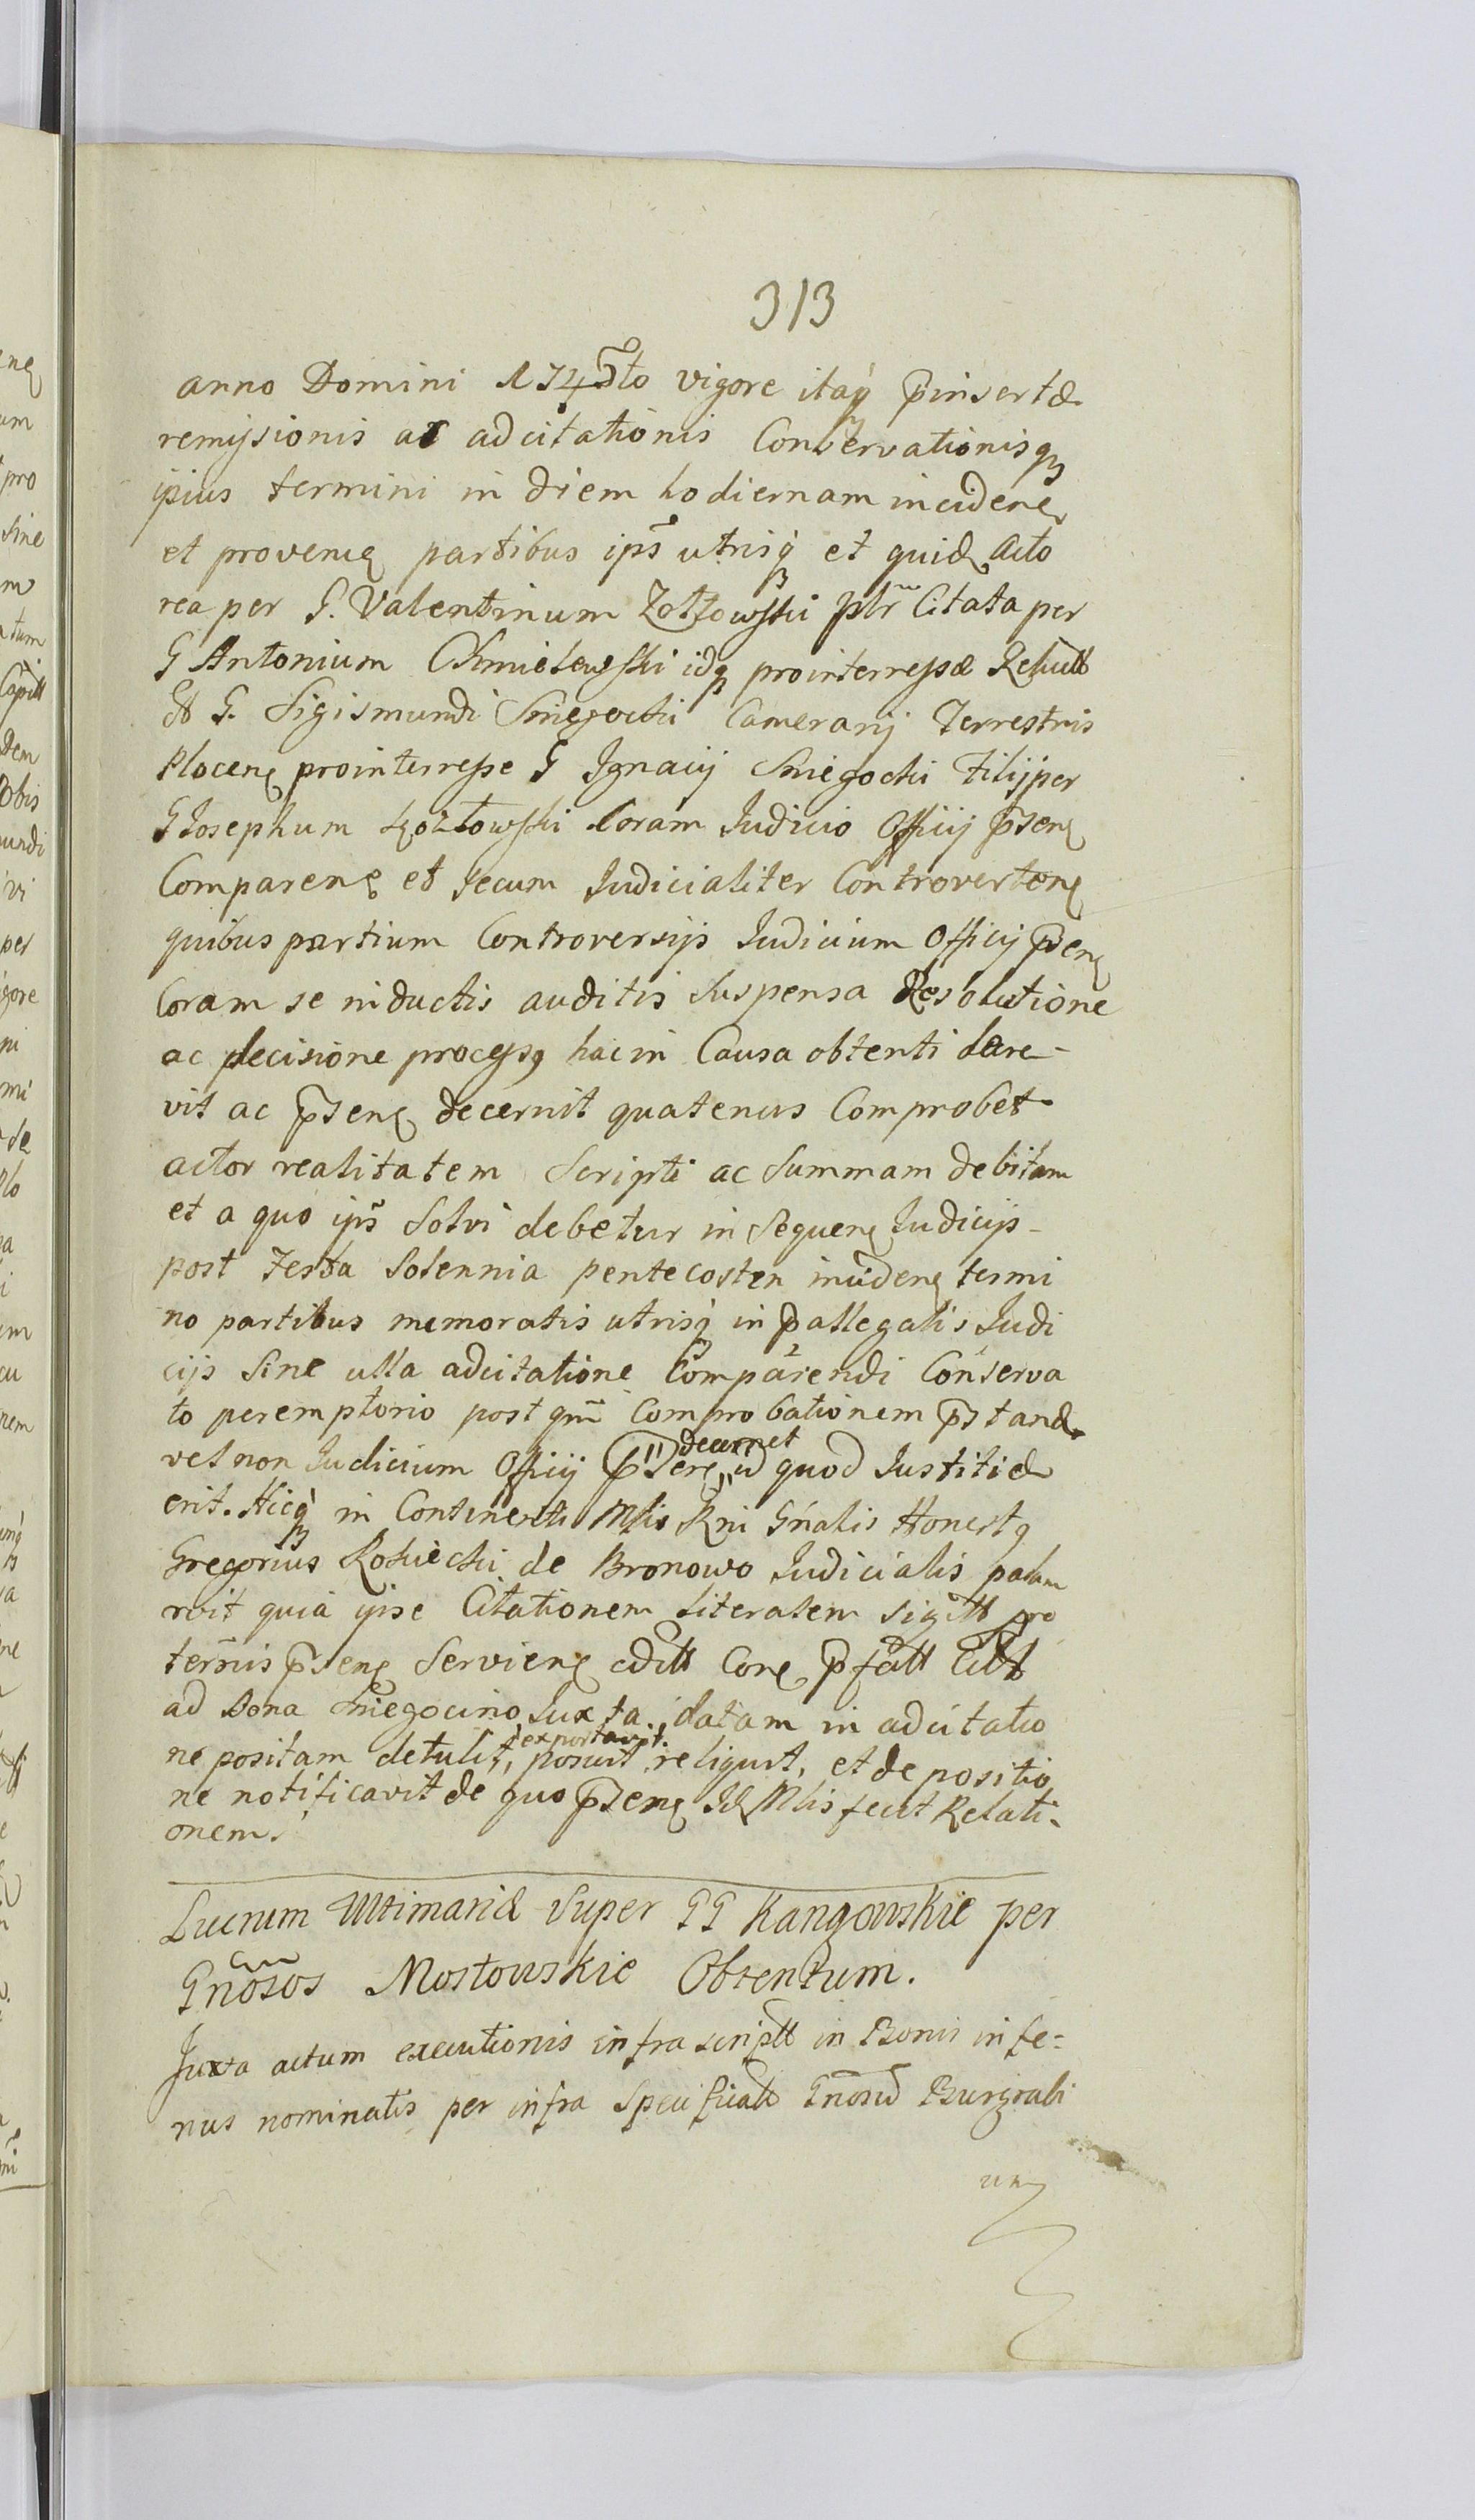 313
anno Domini 1743tio vigore itaq̃ p̃insertæ
remissionis ac adcitationis Conservationisq₃
ipius termini in diem hodiernam inciden̨
et provenien̨ partibus ips̃ utrisq̃ et quid̨ Acto
rea per G. Valentinum Zołtowski plr̃ Citata per
G Antonium Chmielewski idq̨ prointerresse Relicti
G. Sigismundi Sniegocki Camerarij Terrestris
Plocen̨ prointerresse G Ignacij Sniegocki Filij per
G Josephum Kozłowski Coram Judicio Officij p̃sen̨
Comparen̨ et secum Judicialiter Controverten̨
quibus partium Controversijs Judicium Officij p̃sen̨
Coram se inductis auditis Suspensa Resolutione
ac decisione process9 hac in Causa obtenti decre-
vit ac p̃sen̨ decernit quatenus Comprobet
actor realitatem Scripti ac Summam debitam
et a quo ips̃ Solvi debetur in Sequen̨ Judicijs-
post Festa Solennia pentecosten inciden̨ termi
no partibus memoratis utrisq̃ in p̃allegatis Judi
cijs Sine ulla adcitatione Comparendi Conserva
to peremptorio post qm̃ Comprobationem p̃stand̨
vel non Judicium Officij p̃sen̨ decernet id quod Justitiæ
erit. Hicq̃ in Continenti Mlis Rni Gńalis Honest9
Gregorius Rokicki de Bronowo Judicialis palam
 quia ipse Citationem literalem sigitt pro
term̃is p̃sen̨ Servien̨ editt Con̨ p̃fatt Citt
ad bona Sniegocino Juxta datam in adcitatio
ne positam detulit, exportavit. posuit religuit, et de positio
ne notificavit de quo p̃sen̨ Id̨ Mlis fecit Relati-
onem.
Lucrum Ultimariæ Super GG Kangowskie per
Gnõsos Mostowskie Obtentum.
Juxta actum executionis infrascriptt in Bonis infe=
rius nominatis per infra Specificatt Gnõsũ Burgrabi
um